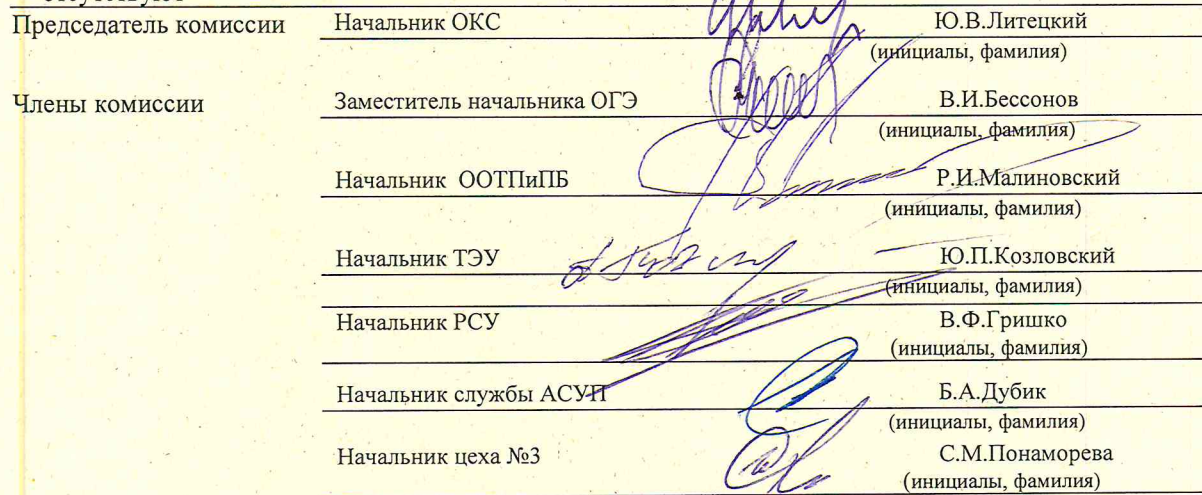 Председатель комиссии Начальник ОКС Ю.В.Литецкий
(инициалы, фамилия)
Члены комиссии Заместитель начальника ОГЭ В.И.Бессонов
(инициалы, фамилия)
Начальник ООТПиПБ Р.И.Малиновский
(инициалы, фамилия)
Начальник ТЭУ Ю.П.Козловский
(инициалы, фамилия)
Начальник РСУ В.Ф.Гришко
(инициалы, фамилия)
Начальник службы АСУП Б.А.Дубик
(инициалы, фамилия)
Начальник цеха №3 С.М.Понаморева
(инициалы, фамилия)